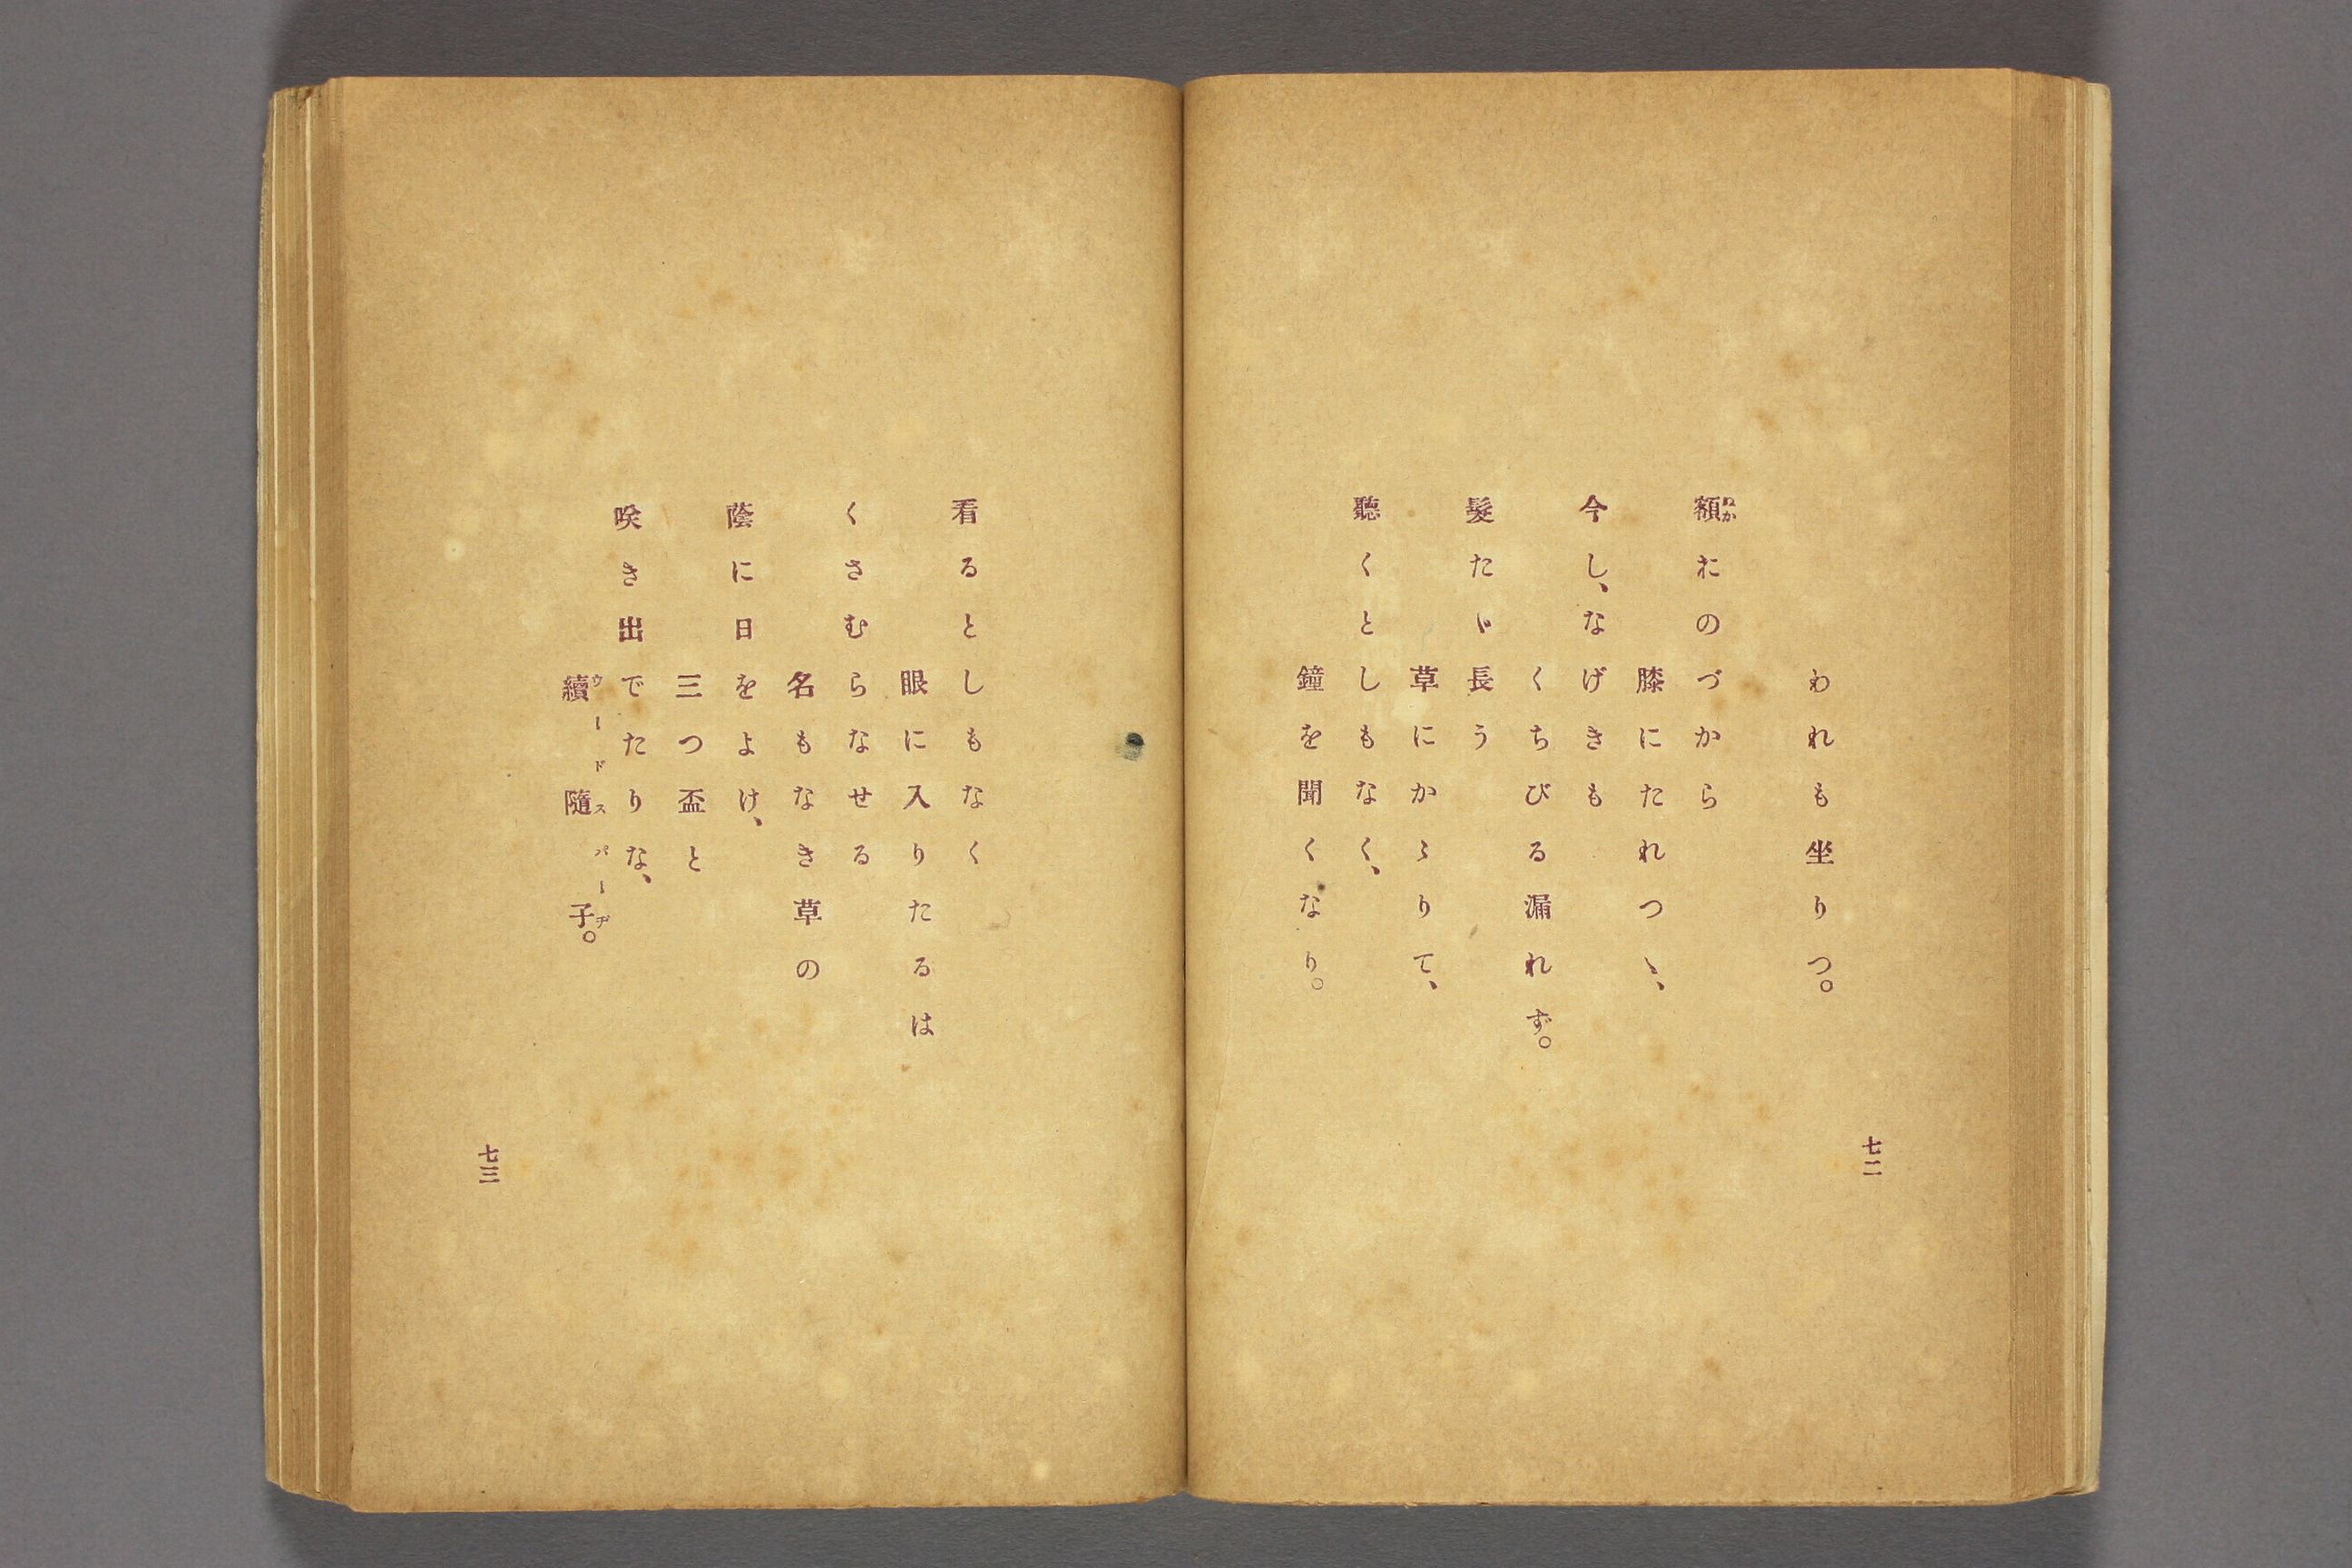 われも坐りつ。
額おのづから
膝にたれつゝ、
今し、なげきも
くちびる漏れず。
髮たゞ長う
草にかゝりて、
聽くとしもなく、
鐘を聞くなり。
七二
看るとしもなく
眼に入りたるは
くさむらなせる
名もなき草の
蔭に日をよけ、
三つ盃と
咲き出でたりな、
續隨子。
ウードスパーヂ
七三